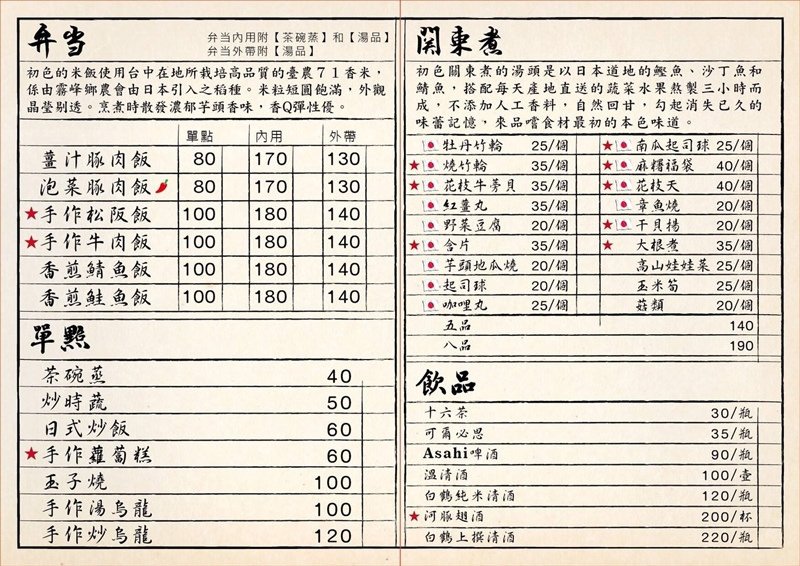 弁当
弁当內用附【茶碗蒸】和【湯品】
弁当外帶附【湯品】
初色的米飯使用台中在地所栽培高品質的臺農７１香米，
係由霧峰鄉農會由日本引入之稻種。米粒短圓飽滿，外觀
晶瑩剔透。烹煮時散發濃郁芋頭香味，香Q彈性優。
單點 內用 外帶
薑汁豚肉飯 80 170 130
泡菜豚肉飯 80 170 130
★手作松阪飯 100 180 140
★手作牛肉飯 100 180 140
香煎鯖魚飯 100 180 140
香煎鮭魚飯 100 180 140
單點
茶碗蒸 40
炒時蔬 50
日式炒飯 60
★手作蘿蔔糕 60
玉子燒 100
手作湯烏龍 100
手作炒烏龍 120
関東煮
初色關東煮的湯頭是以日本道地的鰹魚、沙丁魚和
鯖魚，搭配每天產地直送的蔬菜水果熬製三小時而
成，不添加人工香料，自然回甘，勾起消失已久的
味蕾記憶，來品嚐食材最初的本色味道。
牡丹竹輪 25/個 ★南瓜起司球 25/個
★燒竹輪 35/個 ★麻糬福袋 40/個
★花枝牛蒡貝 35/個 ★花枝天 40/個
紅薑丸 35/個 章魚燒 20/個
野菜豆腐 20/個 ★干貝揚 20/個
★含片 35/個 ★大根煮 35/個
芋頭地瓜燒 20/個 高山娃娃菜 25/個
起司球 20/個 玉米筍 25/個
咖哩丸 25/個 菇類 20/個
五品 140
八品 190
飲品
十六茶 30/瓶
可爾必思 35/瓶
Asahi啤酒 90/瓶
溫清酒 100/壺
白鶴純米清酒 120/瓶
★河豚翅酒 200/杯
白鶴上撰清酒 220/瓶